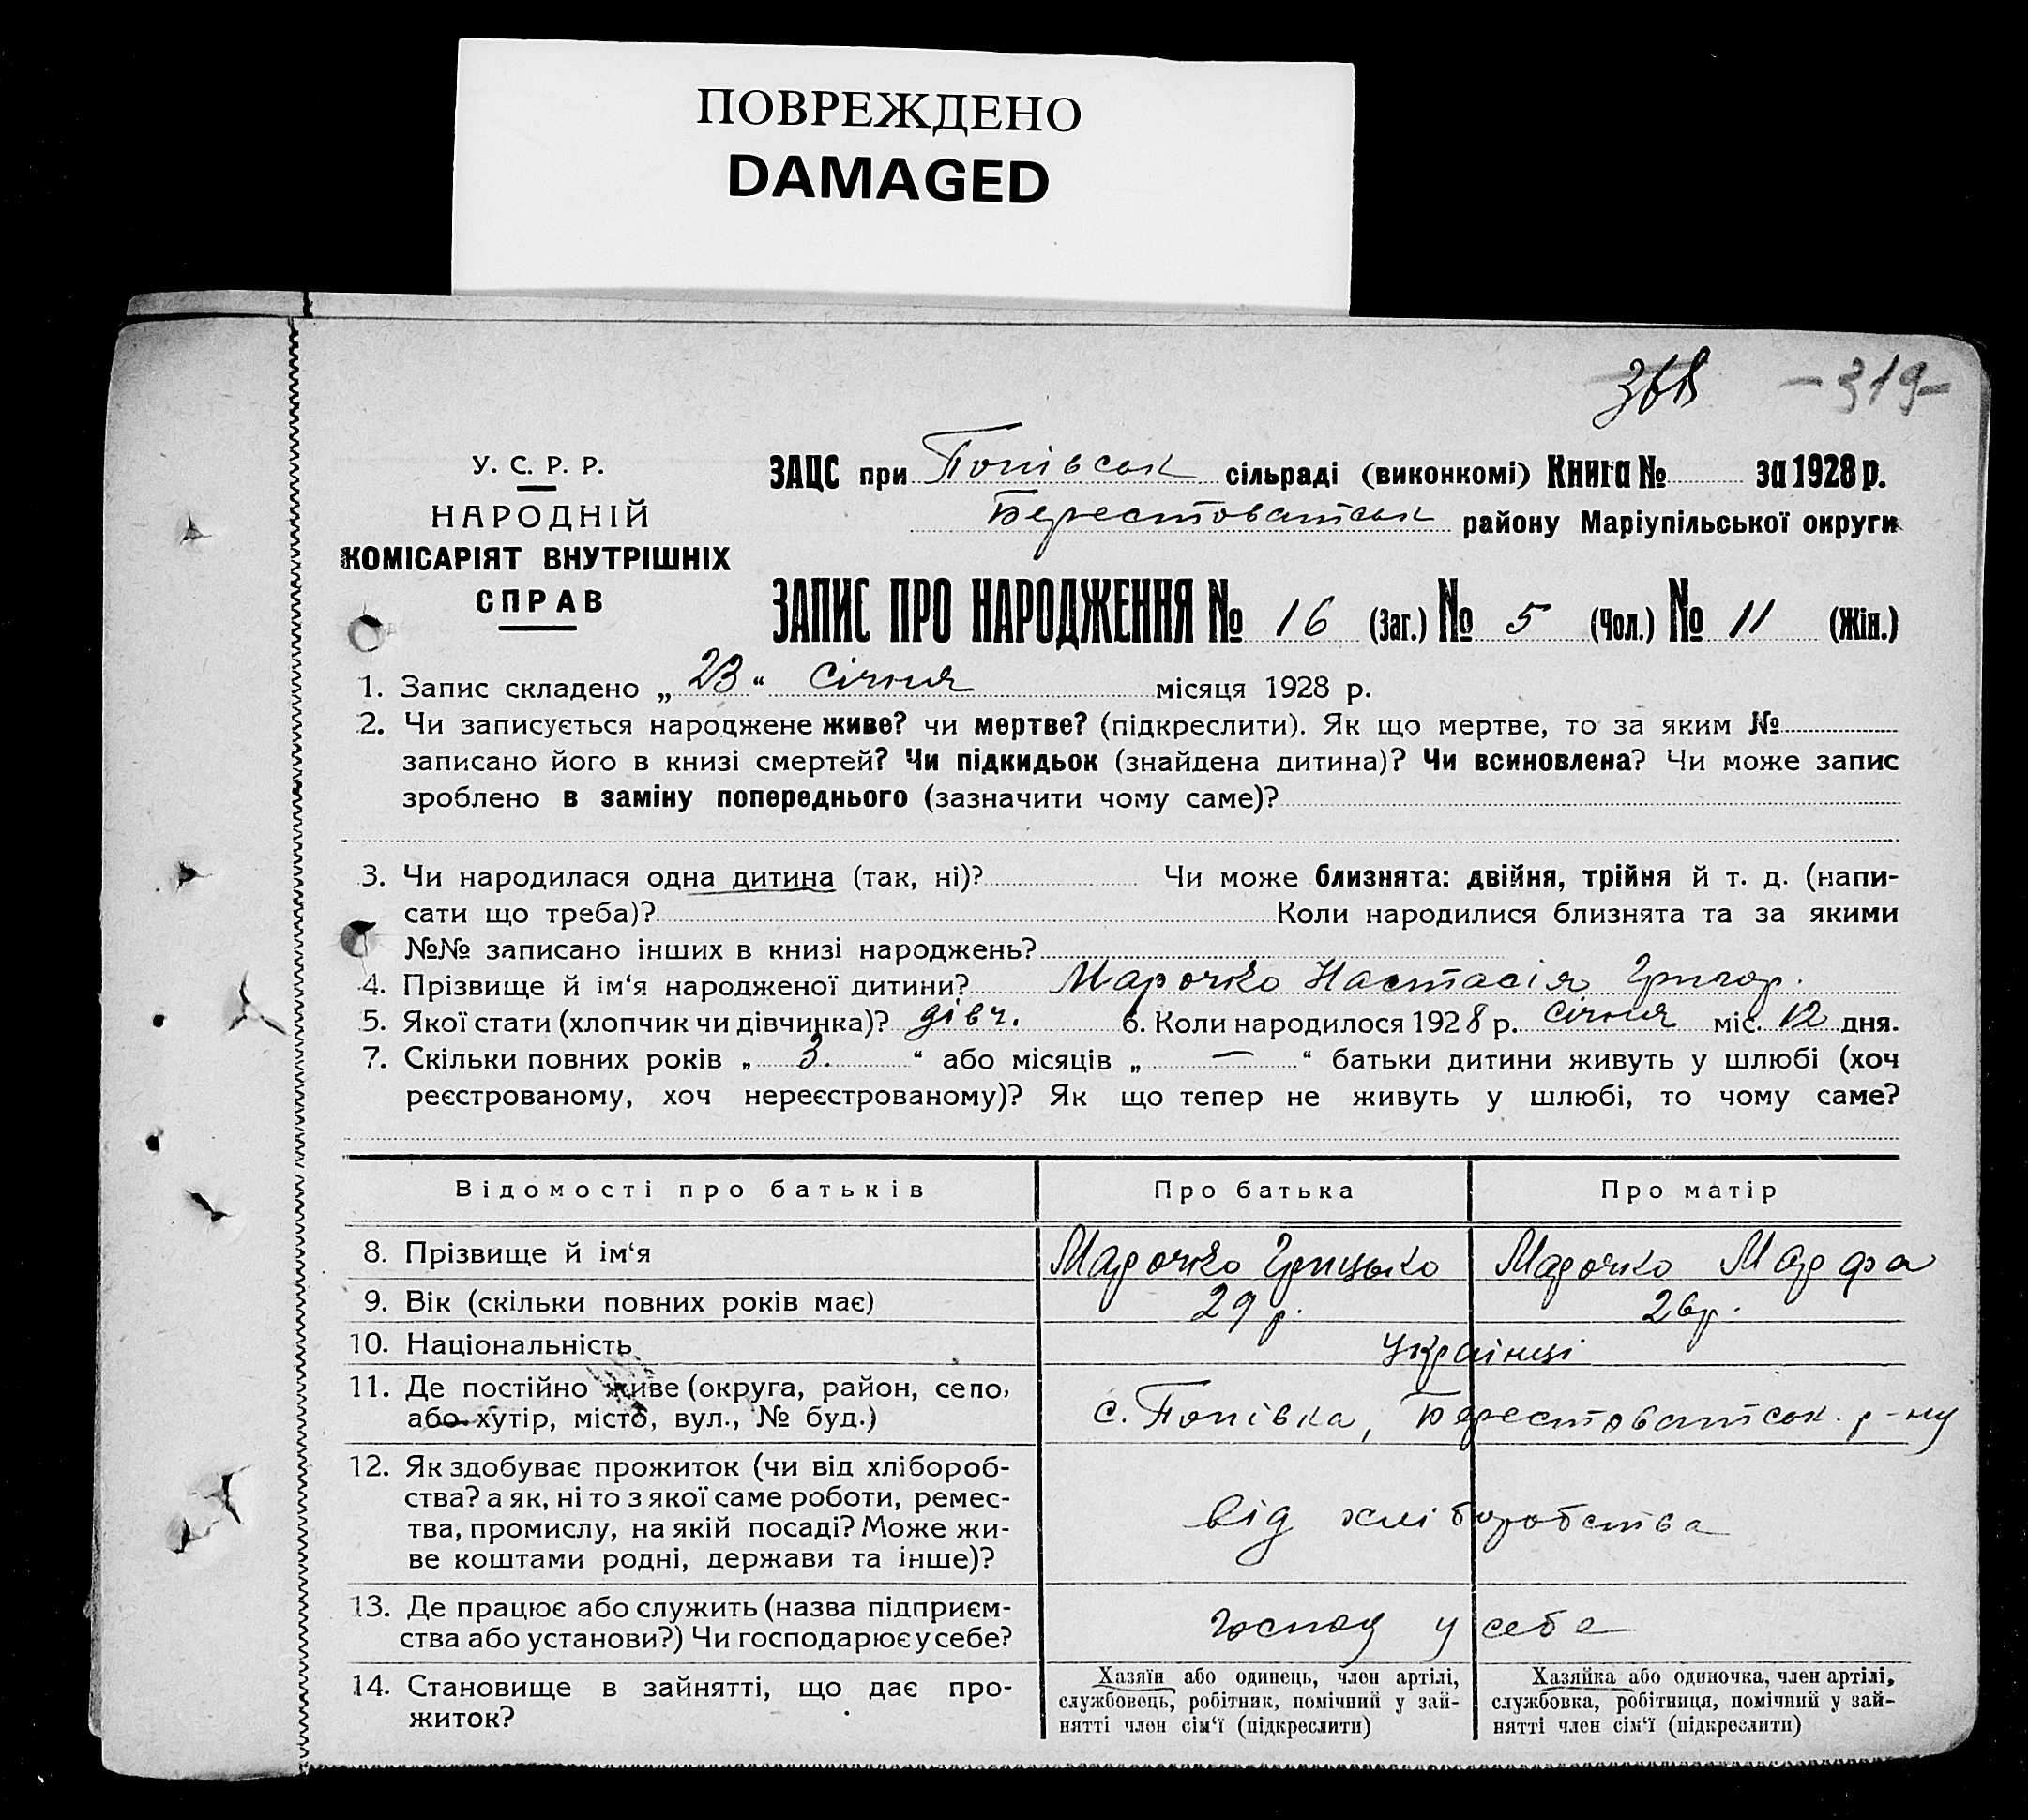 ПОВРЕЖДЕНО
DAMAGED
-319-
У. С. Р. Р.
НАРОДНІЙ
КОМІСАРІЯТ ВНУТРІШНІХ
СПРАВ
ЗАЦС при Попівськ сільраді (виконкомі) Книга № за 1928 р.
Берестоватськ району Маріупільської округи
ЗАПИС ПРО НАРОДЖЕННЯ № 16 (Заг.) № 5 (Чол.) № 11 (Жін.)
1. Запис складено „ 23 “ січня місяця 1928 р.
2. Чи записується народжене живе? чи мертве? (підкреслити). Як що мертве, то за яким №
записано його в книзі смертей? Чи підкидьок (знайдена дитина)? Чи всиновлена? Чи може запис
зроблено в заміну попереднього (зазначити чому саме)?
3. Чи народилася одна дитина (так, ні)? Чи може близнята: двійня, трійня й т. д. (напи-
сати що треба)? Коли народилися близнята та за якими
№№ записано інших в книзі народжень?
4. Прізвище й ім‘я народженої дитини? Марочко Настасія Григор.
5. Якої стати (хлопчик чи дівчинка)? дівч. 6. Коли народилося 1928 р. січня міс. 12 дня.
7. Скільки повних років „ 3. “ або місяців „ — “ батьки дитини живуть у шлюбі (хоч
реєстрованому, хоч нереєстрованому)? Як що тепер не живуть у шлюбі, то чому саме?
Відомості про батьків Про батька Про матір
8. Прізвище й ім‘я Марочко Грицько Марочко Марфа
9. Вік (скільки повних років має) 29 р. 26 р.
10. Національність Українці
11. Де постійно живе (округа, район, село,
або хутір, місто, вул., № буд.) с. Попівка, Берестоватськ. р-ну
12. Як здобуває прожиток (чи від хлібороб-
ства? а як, ні то з якої саме роботи, ремес-
тва, промислу, на якій посаді? Може жи-
ве коштами родні, держави та інше)? від хліборобства
13. Де працює або служить (назва підприєм-
ства або установи?) Чи господарює у себе? господ у себе
14. Становище в зайнятті, що дає про-
житок?
Хазяїн або одинець, член артілі,
службовець, робітник, помічний у зай-
нятті член сім‘ї (підкреслити)
Хазяйка або одиночка, член артілі,
службовка, робітниця, помічний у зай-
нятті член сім‘ї (підкреслити)